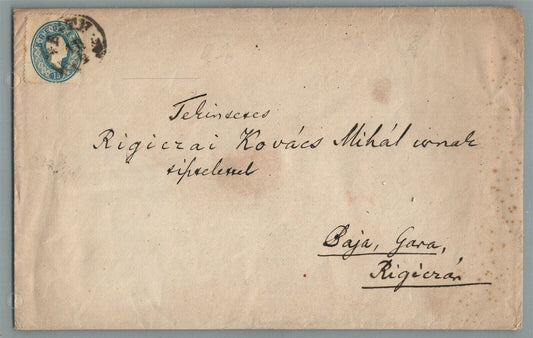 Tekintetes
Rigiczai Kovács Mihál urnak
tisztelettel
Baja, Gara,
Rigiczán